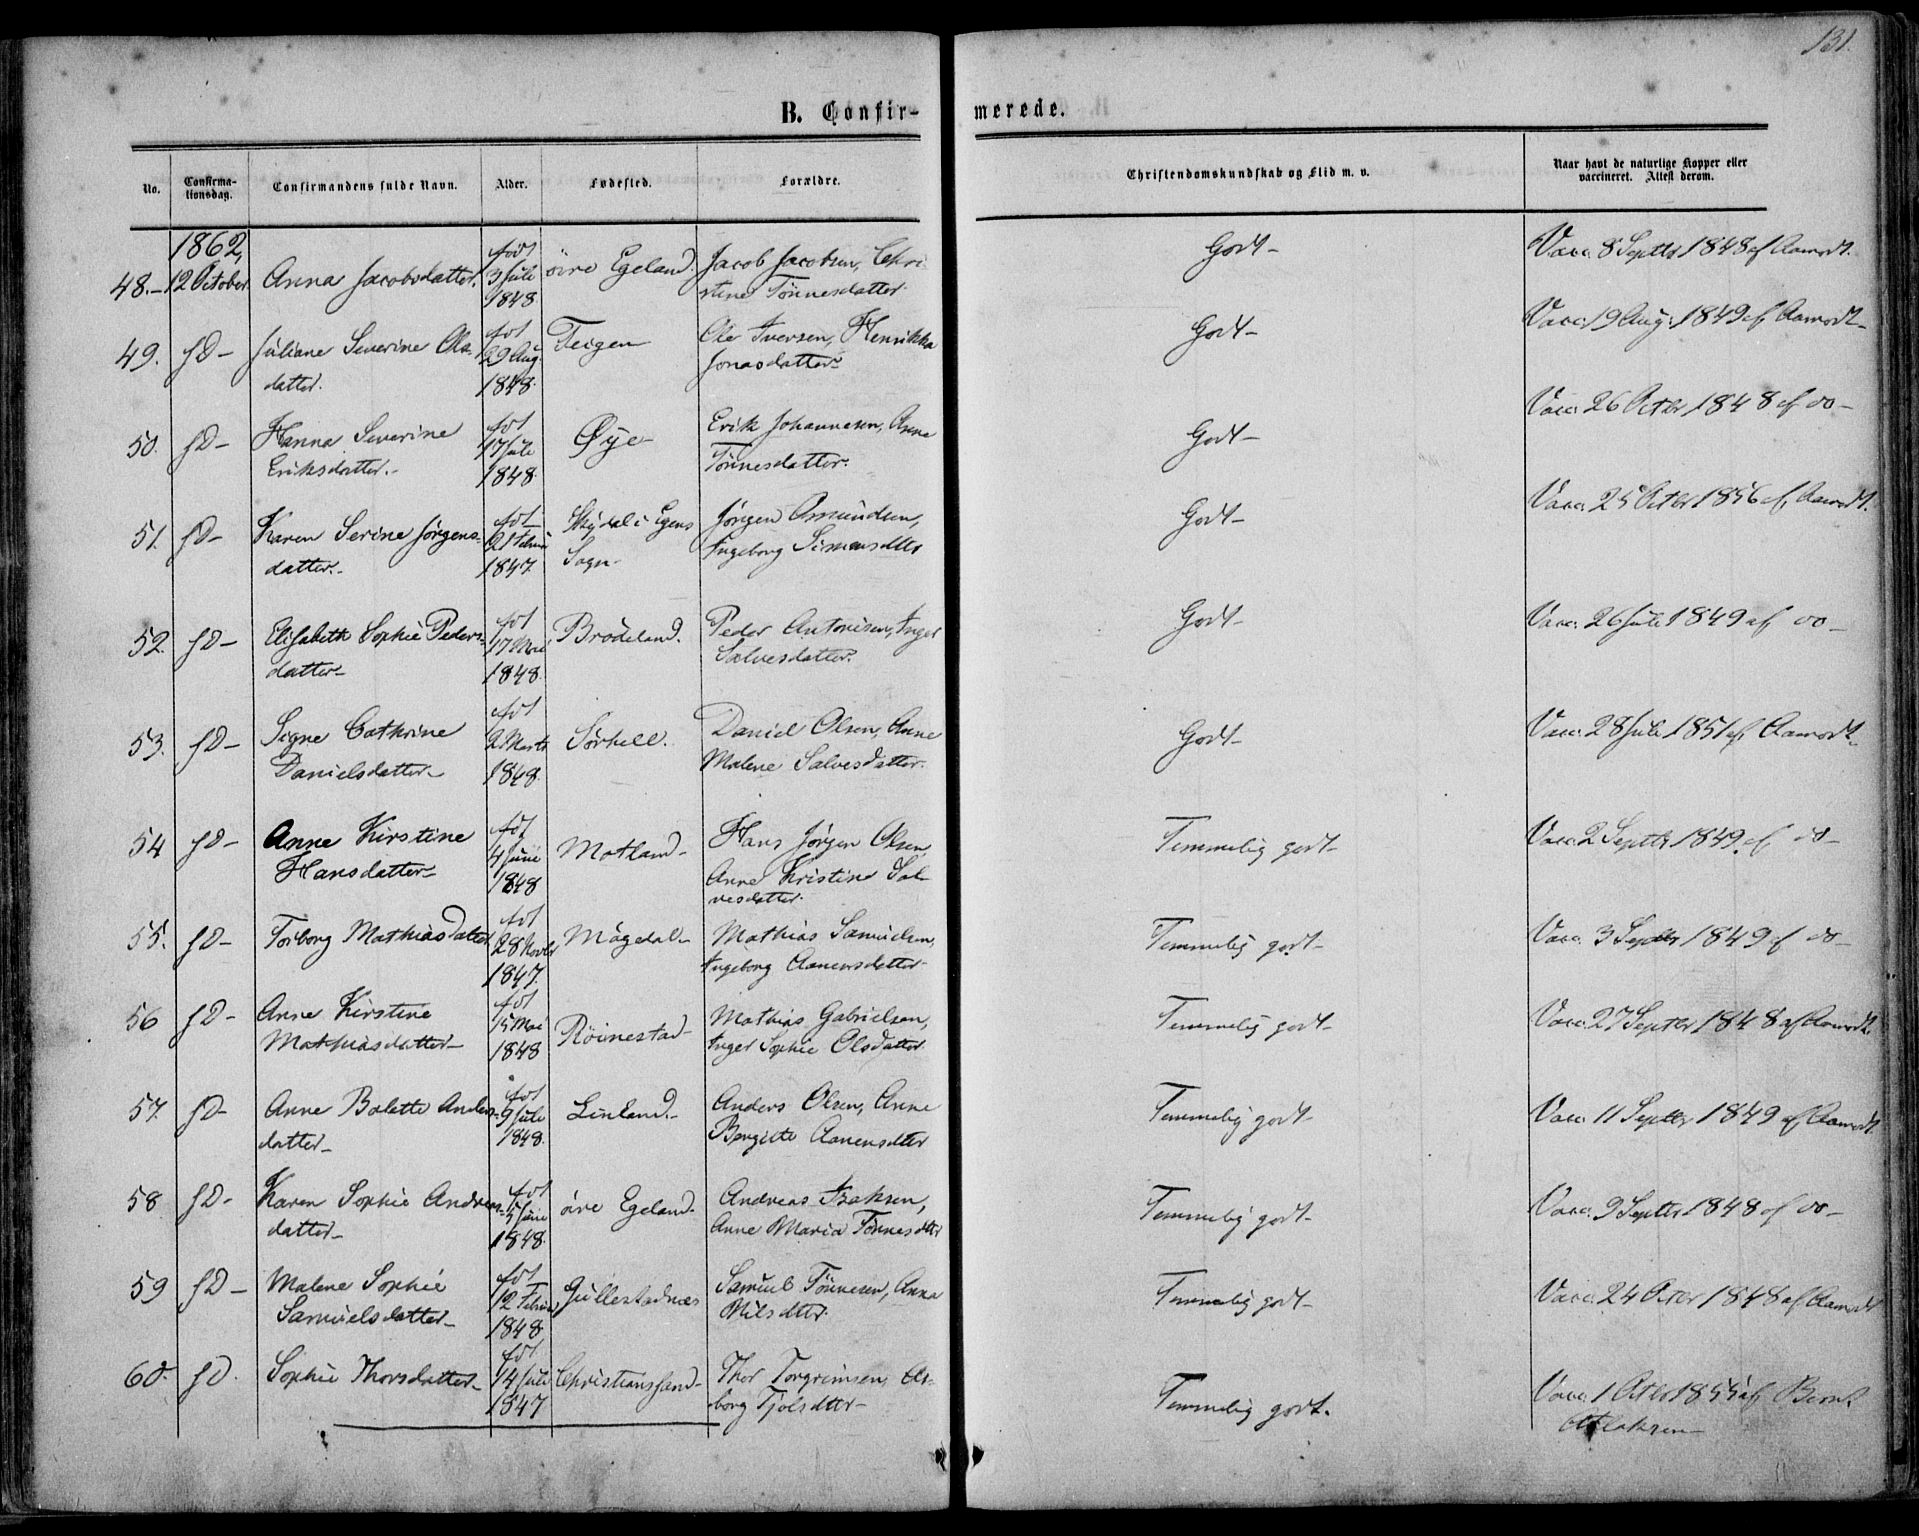 131.
B. Confirmerede.
No. Confirmationsdag. Confirmandens fulde Navn. Alder. Fødested. Forældre. Christendomskundskab og Flid m. v. Naar havt de naturlige Kopper eller vaccineret. Attest derom.
1862,
48.- 12 October Anna Jacobsdatter. født 3 Juli 1848 øvre Egeland. Jacob Jacobsen, Christine Tönnesdatter. Godt- Vacc. 8 Septbr 1848 af Aamodt.
49. sD- Juliane Severine Olsdatter. fdt 29 Aug. 1848. Teigen Ole Iversen, Henrikka Jonasdatter Godt- Vacc. 19 Aug. 1849 af Aamodt-
50. sD- Hanna Severine Eriksdatter.- fdt 17 Juli 1848. Øye- Erik Johannesen, Anna Tönnesdatter. Godt- Vacc. 26 Octbr 1848 af do-
51. sD- Karen Serine Jørgensdatter.- fdt 21 Februar 1847. i Egens Sogn- Jörgen Amundsen, Ingeborg Simonsdtter Godt- Vacc. 25 Octbr 1856 af Aamodt.
52. sD- Elisabeth Sophie Pedersdatter- fdt 17 Mai 1848. Brödeland. Peder Antonisen, Inger Salvesdatter. Godt- Vacc. 26 Juli 1849 af do-
53. sD- Signe Cathrine Danielsdatter- fdt 2 Marts 1848. Sörhell. Daniel Olsen, Anne Malene Salvesdatter. Godt- Vacc. 28 Juli 1851 af Aamodt-
54 sD- Anne Kirstine Hansdatter- fdt 4 Juni 1848 Motland- Hans Jörgen Olsen, Anne Kristine Salvesdatter. Temmelig godt- Vacc. 2 Septbr 1849 af do-
55. sD- Torborg Mathiasdatter fdt 28 Novbr 1847. Mögedal- Mathias Samuelsen, Ingeborg Aanensdatter- Temmelig godt- Vacc. 3 Septbr 1849 af do-
56 sD- Anne Kirstine Mathiasdatter- fdt 15 Mai 1848 Röinestad- Mathias Gabrielsen, Inger Sophie Olsdatter Temmelig godt- Vacc. 27 Septbr 1848 af Aamodt.
57. sD- Anne Bolette Andersdatter- fdt 9 Juli 1848. Linland.- Anders Olsen, Anne Bergitte Aanensdtter Temmelig godt- Vacc. 11 Septbr 1849 af Aamodt.
58 sD- Karen Sophie Andreasdatter- fdt Juni 1848. øvre Egeland- Andreas Isaksen, Anne Maria Tönnesdtter Temmelig godt- Vacc. 9 Septbr 1848 af do-
59 sD- Malene Sophie Samuelsdatter- fdt 12 Februar 1848 Gullestadnæs Samuel Tönnesen, Anna Nilsdtter Temmelig godt- Vacc. 24 Octbr 1848 af Aamodt
60. sD. Sophie Thorsdatter- fdt 14 Juli 1847 Christianssand- Thor Torgrimsen, Asborg Tjölsdtter- Temmelig godt. Vacc. 1 Octbr 1855 af Bernt Aslaksen-